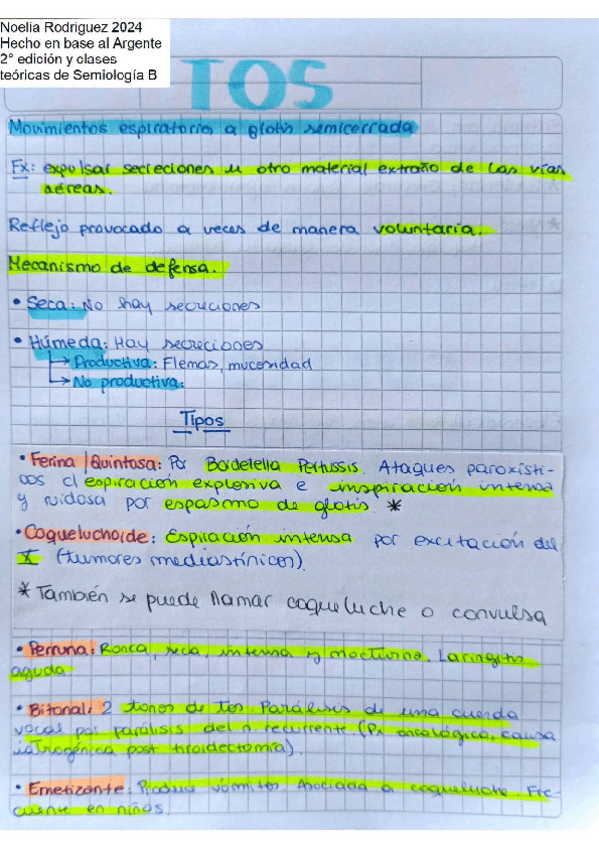 Noelia Rodriguez 2024
Hecho en base al Argente
2° edición y clases
teóricas de Semiología B
TOS
Movimientos espiratorios a glotis semicerrada
Fx: expulsar secreciones u otro material extraño de las vías
aéreas.
Reflejo provocado a veces de manera voluntaria.
Mecanismo de defensa.
• Seca: No hay secreciones
• Húmeda: Hay secreciones
↳ Productiva: Flemas, mucosidad
↳ No productiva:
Tipos
• Ferina / Quintosa: Por Bordetella Pertussis. Ataques paroxísti-
cos c/ espiración explosiva e inspiración intensa
y ruidosa por espasmo de glotis *
• Coqueluchoide: Espiración intensa por excitación del
X (tumores mediastínicos).
* También se puede llamar coqueluche o convulsa
• Perruna: Ronca, seca, intensa y nocturna. Laringitis
aguda.
• Bitonal: 2 tonos de tos. Parálisis de una cuerda
vocal por parálisis del n. recurrente. (Px oncológico, causa
iatrogénica post tiroidectomía).
• Emetizante: Produce vómitos. Asociada a coqueluche. Fre-
cuente en niños.